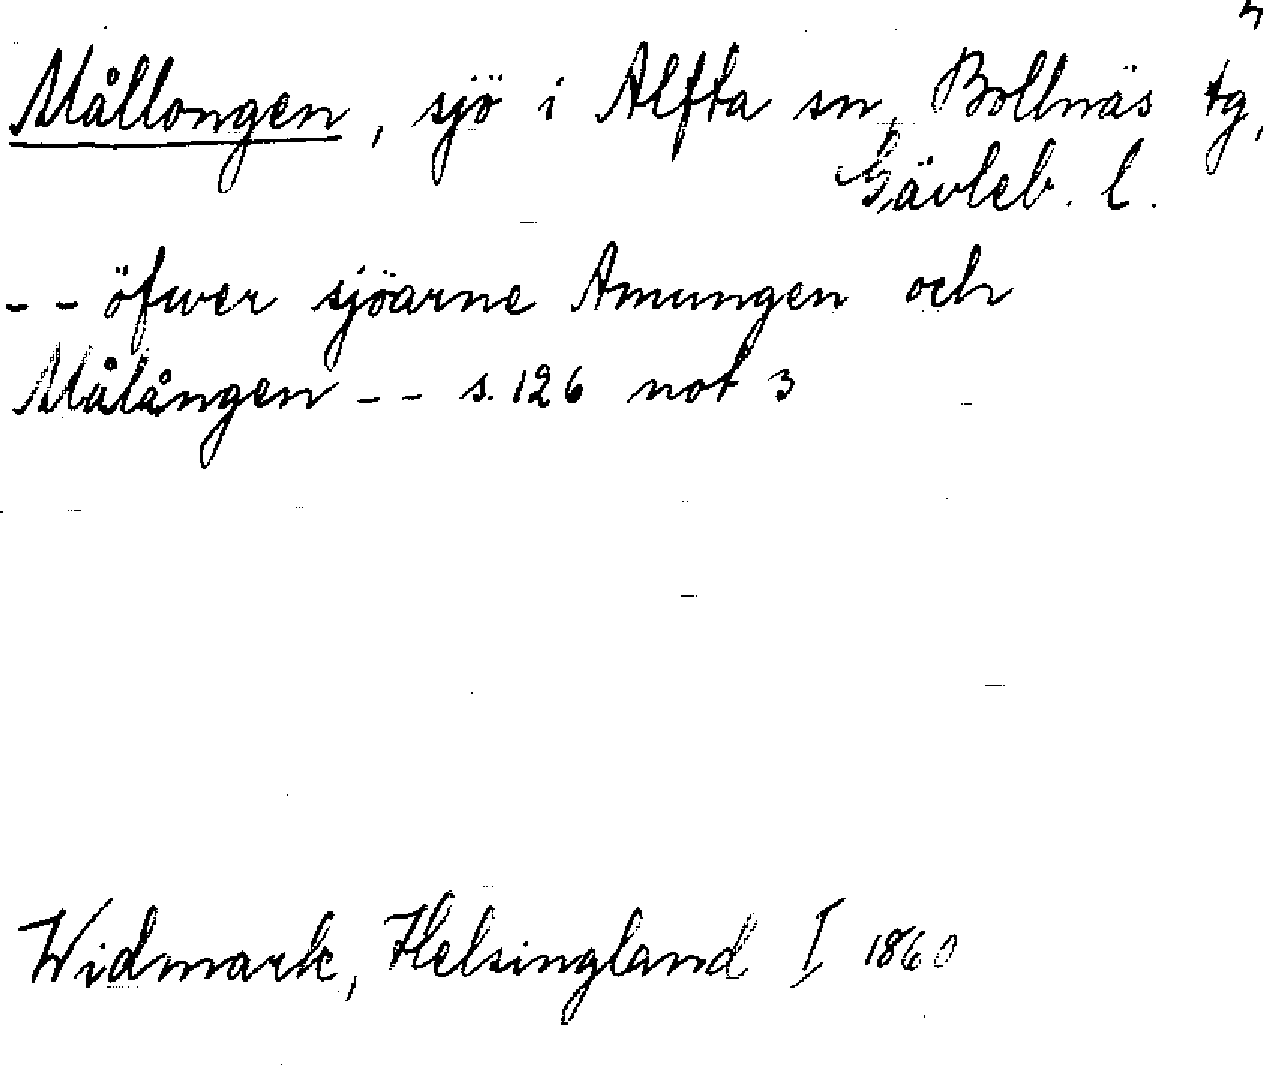 Mållongen, sjö i Alfta sn, Bollnäs tg,
Gävleb. l.
-- öfwer sjöarne Amungen och
Målången -- s. 126 not 3
Widmark, Helsingland I 1860